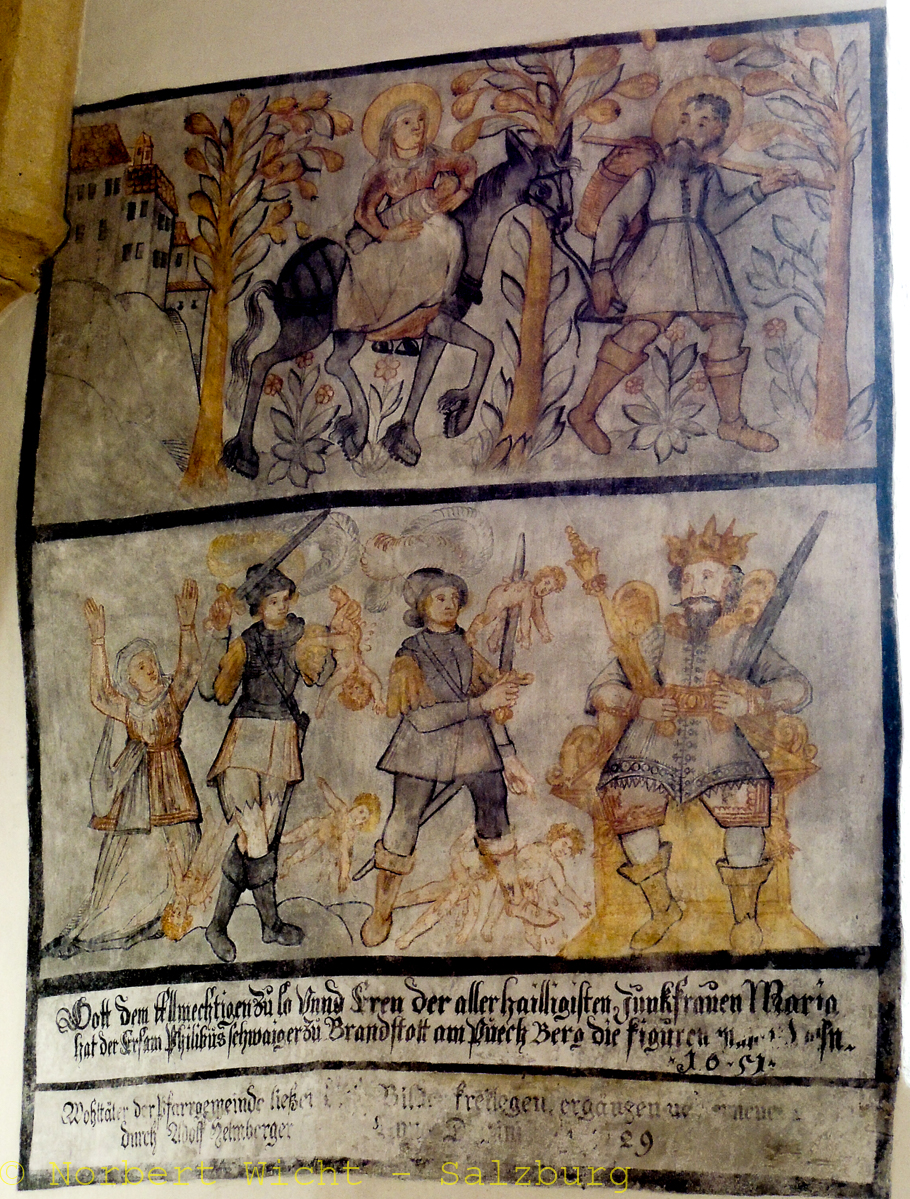 Gott dem Allmechtigen zu lob Unnd Eren der allerhailligisten Junkfrauen Maria
hat der Ersam Philibus schwaiger zu Brandstott am Puech Berg die figuren
1651
Wohltäter der Pfarrgemeinde ließen Bilder freilegen, ergänzen
durch Adolf
29
© Norbert Wicht - Salzburg